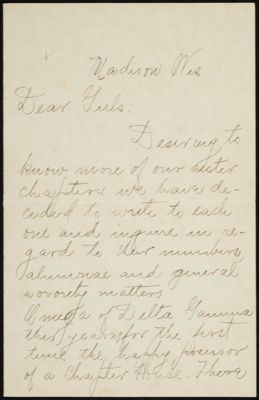 Madison Wis
Dear Girls:
Desiring to
know more of our sister
chapters we have de-
cided to write to each
one and inquire in re-
gard to their numbers,
alumnae and general
sorority matters.
Omega of Delta Gamma
this year for the first
time the happy possessor
of a Chapter House. There